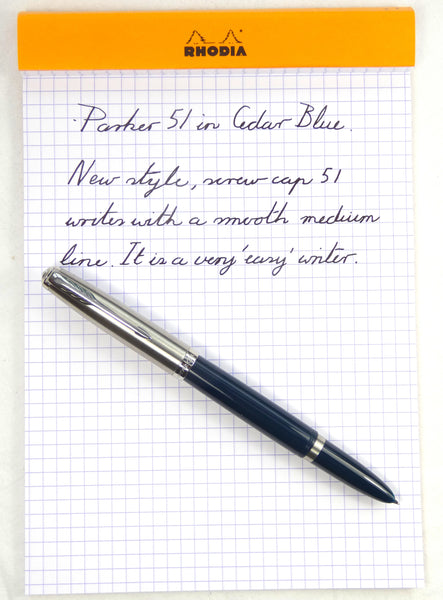 RHODIA
Parker 51 in Cedar Blue.
New style, screw cap 51
writes with a smooth medium
line. It is a very 'easy' writer.